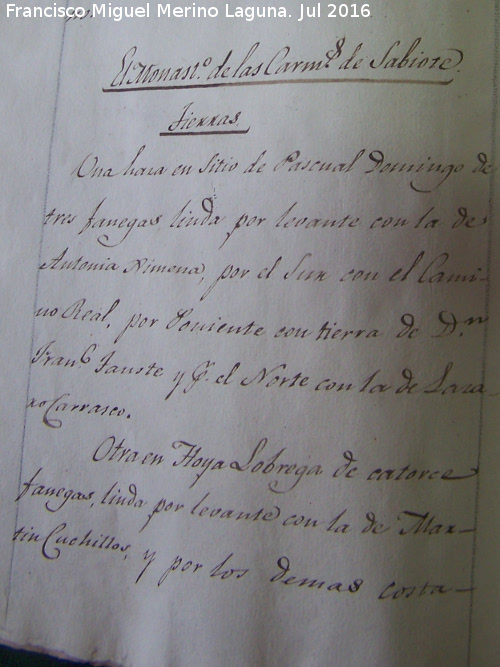 Francisco Miguel Merino Laguna. Jul 2016
El Monast.º de las Carm.s de Sabiote.
Tierras
Una haza en sitio de Pascual Domingo de
tres fanegas, linda por levante con la de
Antonia Ximena, por el Sur con el Cami-
no Real, por Poniente con tierra de D.n
Fran.co Fauste y p.r el Norte con la de Laza-
ro Carrasco.
Otra en Hoya Lobrega de catorce
fanegas, linda por levante con la de Mar-
tin Cuchillos, y por los demas costa-